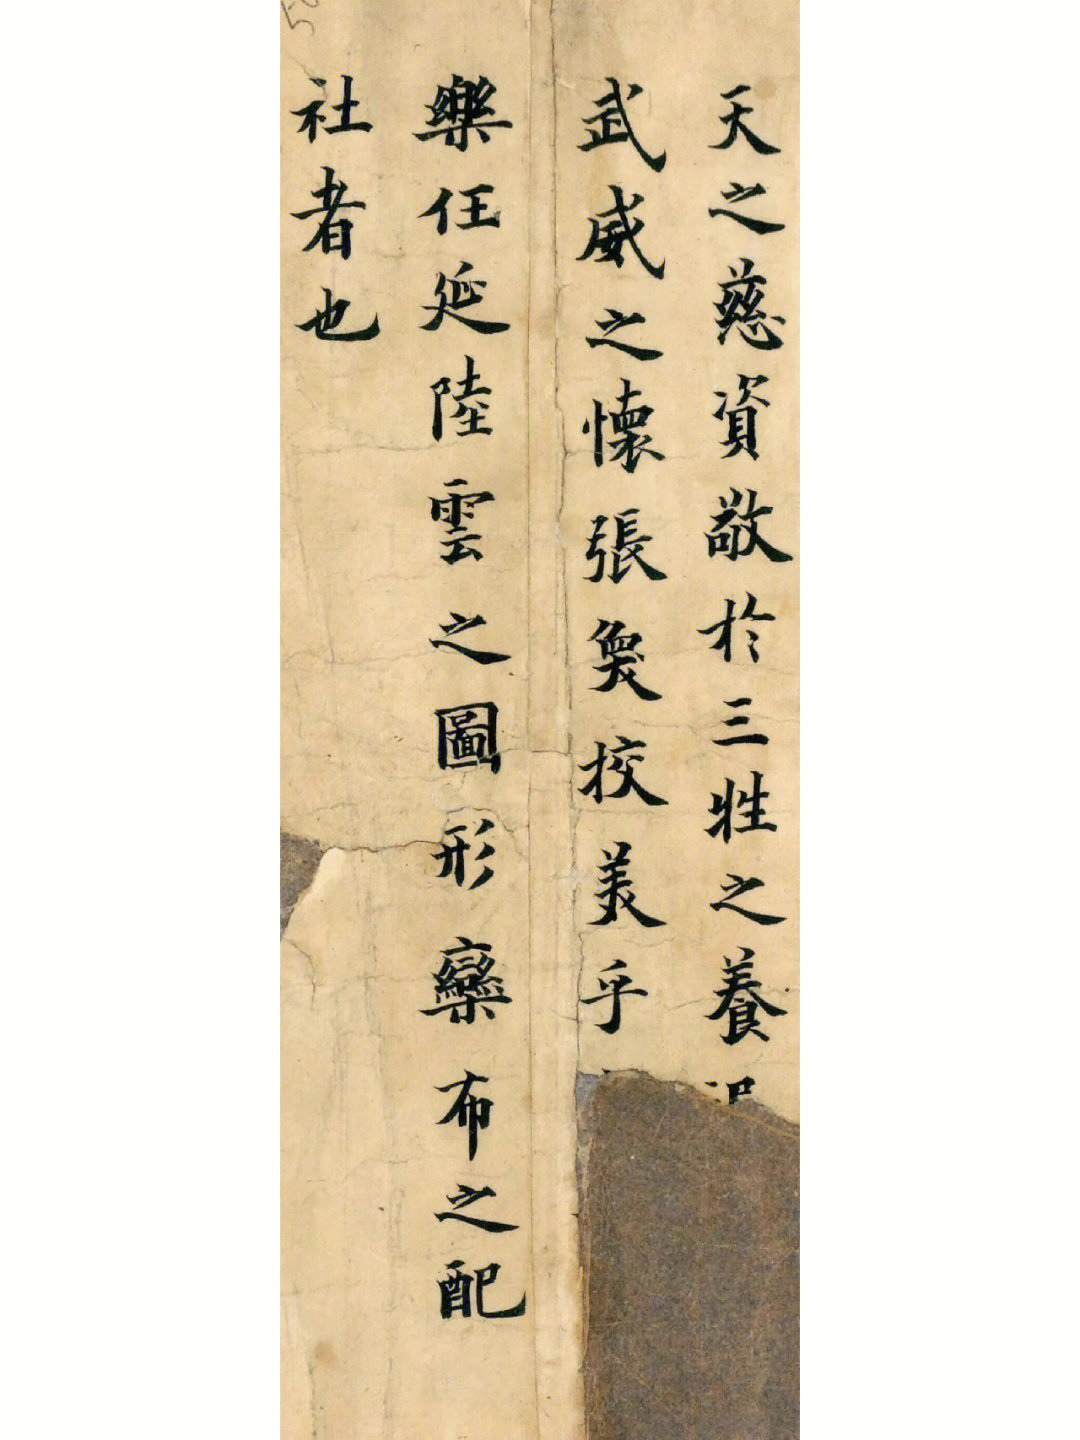 天之慈資敬於三牲之養
武威之懷張奐校美乎
樂任延陸雲之圖形欒布之配
社者也